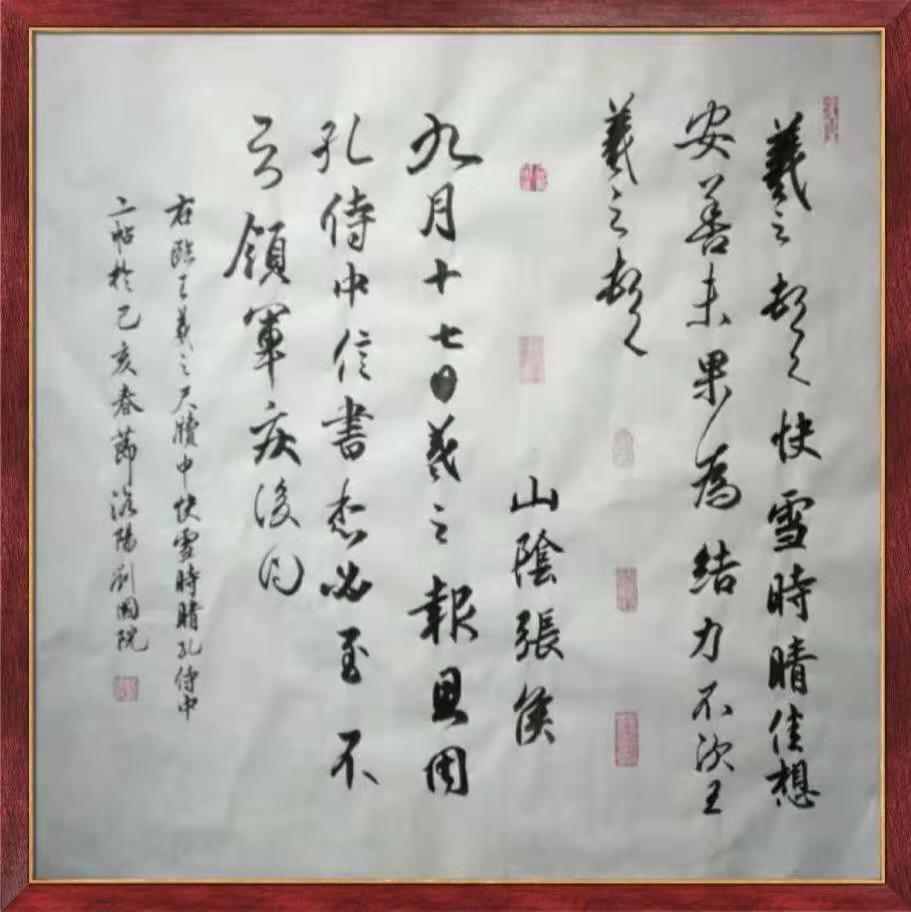 羲之頓首快雪時晴佳想
安善未果為結力不次王
羲之頓首
山陰張侯
九月十七日羲之報且因
孔侍中信書想必至不
知領軍疾後問
右臨王羲之尺牘中快雪時晴孔侍中
二帖於己亥春節洛陽劉國院